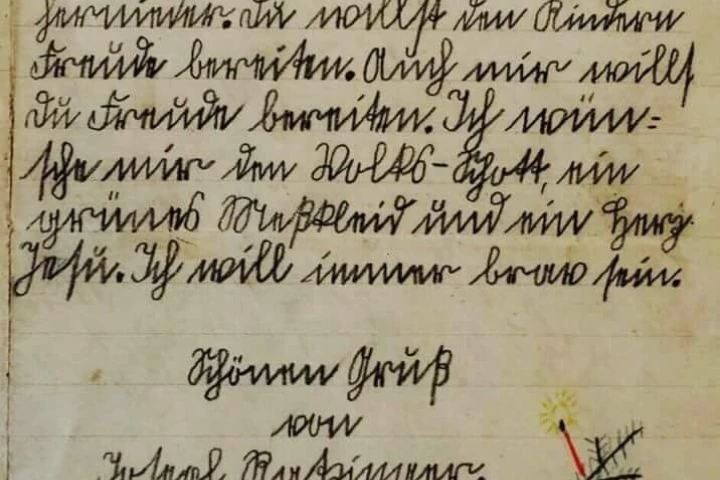 hernieder. Du willst den Kindern
Freude bereiten. Auch mir willst
Du Freude bereiten. Ich wün=
sche mir den Volks-Schott, ein
grünes Meßkleid und ein Herz
Jesu. Ich will immer brav sein.
Schönen Gruß
von
Joseph Ratzinger.